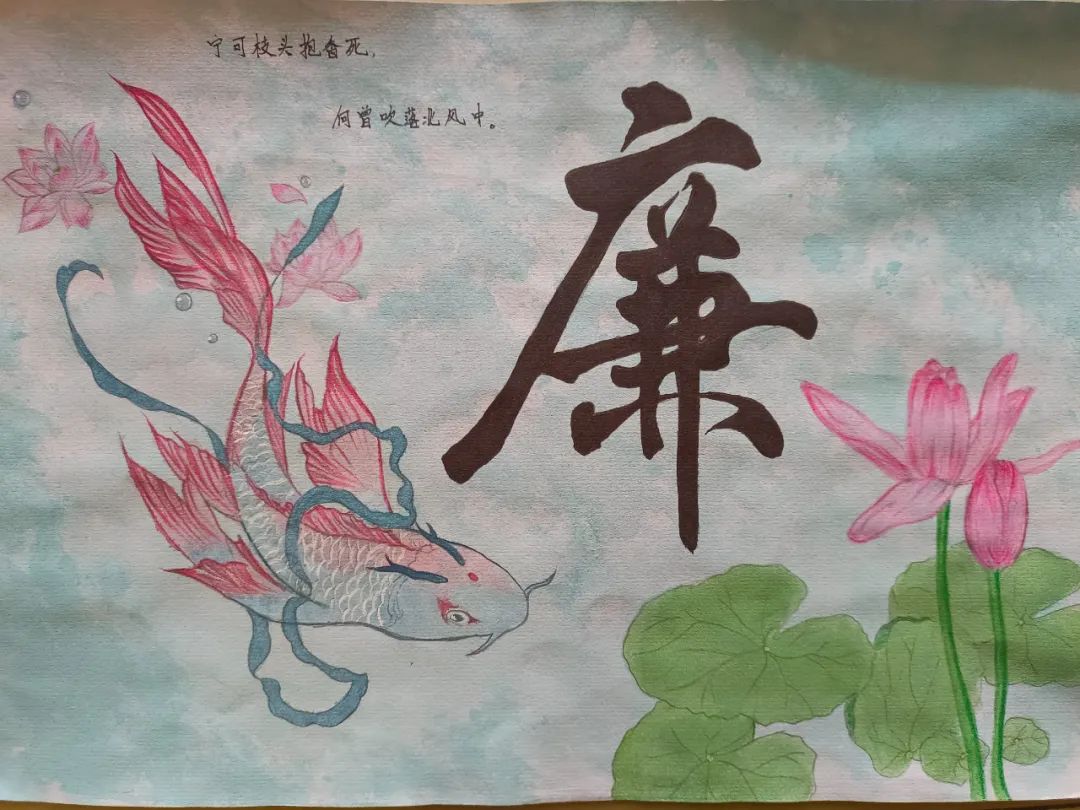 宁可枝头抱香死,
何曾吹落北风中。
廉